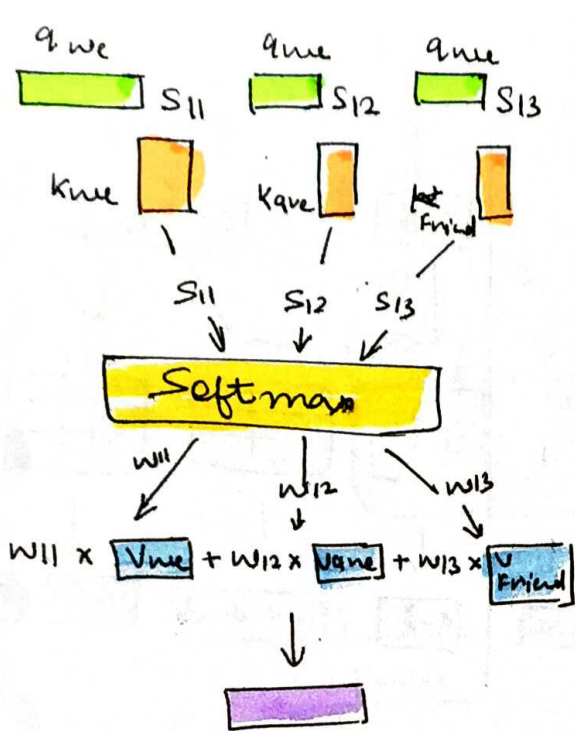 qwe qwe qwe
S11 S12 S13
Kwe Kare Friend
S11 S12 S13
Softmax
W11 W12 W13
W11 x Vwe + W12 x Vare + W13 x V Friend